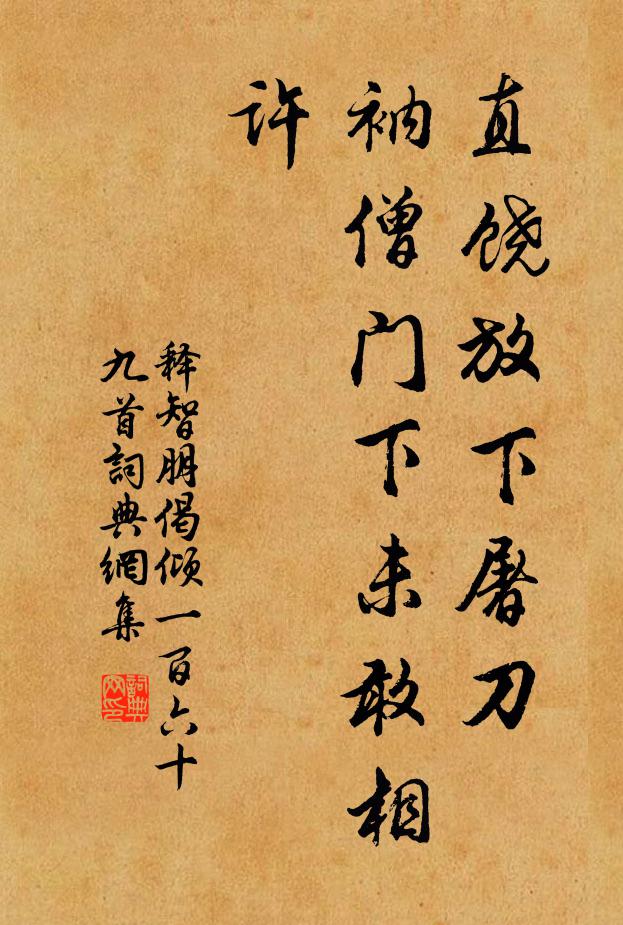 直饶放下屠刀
衲僧门下未敢相
许
释智朋偈倾一百六十
九首詞典網集
詞典網印